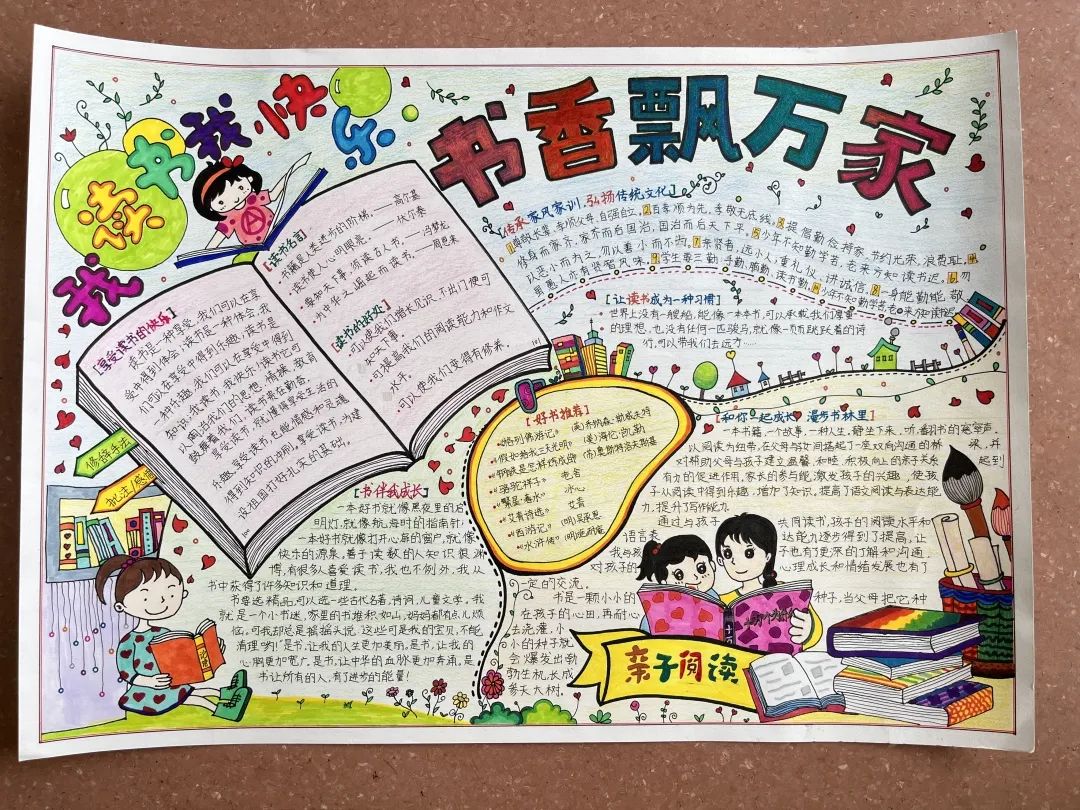 我读书我快乐
书香飘万家
【享受读书的快乐】
读书是一种享受，我们可以在享
受中得到体会；读书是一种体会，我
们可以在享受中得到乐趣；读书是
一种乐趣，我们可以在享受中得到
知识。我读书，我快乐！读书它可
陶冶我们的思想、情操，教育
享受读书，就懂得享受生活的
乐趣；享受读书，也能情感和灵魂
得到知识的冲刷。享受读书，为建
设祖国打好扎实的基础。
【读书名言】
书籍是人类进步的阶梯。——高尔基
读书使人心明眼亮。——伏尔泰
要知天下事，须读古人书。——冯梦龙
为中华之崛起而读书。——周恩来
【读书的好处】
可以使我们增长见识，不出门便可
知天下事。
可提高我们的阅读能力和作文
水平。
可以使我们变得有修养。
【传承家风家训，弘扬传统文化】
1尊敬长辈，孝顺父母，自强自立。2百孝顺为先，孝敬无底线。3提倡勤俭持家，节约光荣，浪费耻。4
修身而家齐，家齐而后国治，国治而后天下平。5少年不知勤学苦，老来方知读书迟。6勿
以恶小而为之，勿以善小而不为。7亲贤者，远小人；重礼仪，讲诚信。8一身能勤能敬，
9学生要三勤：手勤、脑勤、读书勤。
【让读书成为一种习惯】
世界上没有一艘船，能像一本书，可以承载我们厚重
的理想，也没有任何一匹骏马，就像一页页跳跃着的诗
行，可以带我们去远方……
【好书推荐】
《格列佛游记》 (英)乔纳森·斯威夫特
《假如给我三天光明》 (美)海伦·凯勒
《钢铁是怎样炼成的》 (苏)奥斯特洛夫斯基
《骆驼祥子》 老舍
《繁星·春水》 冰心
《艾青诗选》 艾青
《西游记》 (明)吴承恩
《水浒传》 (明)施耐庵
【和你一起成长，漫步书林里】
一本书籍，一个故事，一种人生，静坐下来，听，翻书的
以阅读为纽带，在父母与女间搭起了一座双向沟通的桥梁，并
对帮助父母与孩子建立温馨、和睦、积极向上的亲子关系起到
有力的促进作用，家长的参与能激发孩子的兴趣，使孩
子从阅读中得到乐趣，增加了知识，提高了语文阅读与表达能
力，提升了写作能力。
通过与孩子共同读书，孩子的阅读水平和
语言表达能力逐步得到了提高，让
我与孩子也有更深的了解和沟通，
对孩子的心理成长和情绪发展也有了
一定的交流。
书是一颗小小的种子，当父母把它种
在孩子的心田，再耐心
去浇灌，小
小的种子就
会爆发出勃
勃生机，长成
参天大树。
修辞手法
批注感悟
【书伴我成长】
一本好书就像黑夜里的启
明灯，就像航海时的指南针；
一本好书就像打开心扉的窗户，就像
快乐的源泉，善于读数的人知识很渊
博，有很多人喜爱读书，我也不例外，我从
书中获得了许多知识和道理。
书要选精品，可以选一些古代名著，诗词，儿童文学。我
就是一个小书迷，家里的书堆积如山，妈妈都有点儿烦
恼。可我却总是摇摇头说："这些可是我的宝贝，不能
清理"哟！"是书，让我的人生更加美丽，是书，让我的
心胸更加宽广，是书，让中华的血脉更加奔涌，是
书让所有的人，有了进步的能量！
亲子阅读